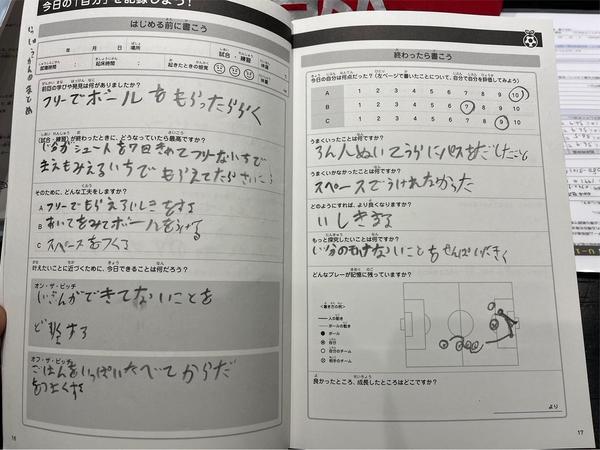 今日の「自分」を記録しよう！
はじめる前に書こう
年 月 日 場所
試合・練習
就寝時間
起床時間
起きたときの感覚
体重
前回の学びや発見は何がありましたか？
フリーでボールをもらったら
(試合・練習)が終わったときに、どうなっていたら最高ですか？
シュートを7日
まえもみえるいちでもらえてたらさいこう
そのために、どんな工夫をしますか？
A フリーでもらえるいしきをする
B あいてをみてボールをうける
C スペースをつくる
叶えたいことに近づくために、今日できることは何だろう？
オン・ザ・ピッチ
じぶんができてないことを
する
オフ・ザ・ピッチ
ごはんをいっぱいたべてからだ
をつよくする
16
終わったら書こう
今日の自分は何点だった？(左ページで書いたことについて、自分で自分を評価してみよう)
A 1 2 3 4 5 6 7 8 9 10
B 1 2 3 4 5 6 7 8 9 10
C 1 2 3 4 5 6 7 8 9 10
うまくいったことは何ですか？
3人ぬいてうらにパスをだしたこと
うまくいかなかったことは何ですか？
スペースでうけれなかった
どのようにすれば、より良くなりますか？
いしきする
もっと探究したいことは何ですか？
どんなプレーが記憶に残っていますか？
<書き方の例>
人の動き
ボールの動き
ボール
自分
自分のチーム
相手のチーム
良かったところ、成長したところはどこですか？
より
17